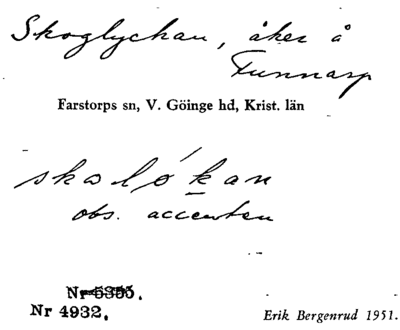 Skoglyckan, åker å
Funnarp
Farstorps sn, V. Göinge hd, Krist. län
skoló́kan
obs. accenten
Nr 5355.
Nr 4932.
Erik Bergenrud 1951.